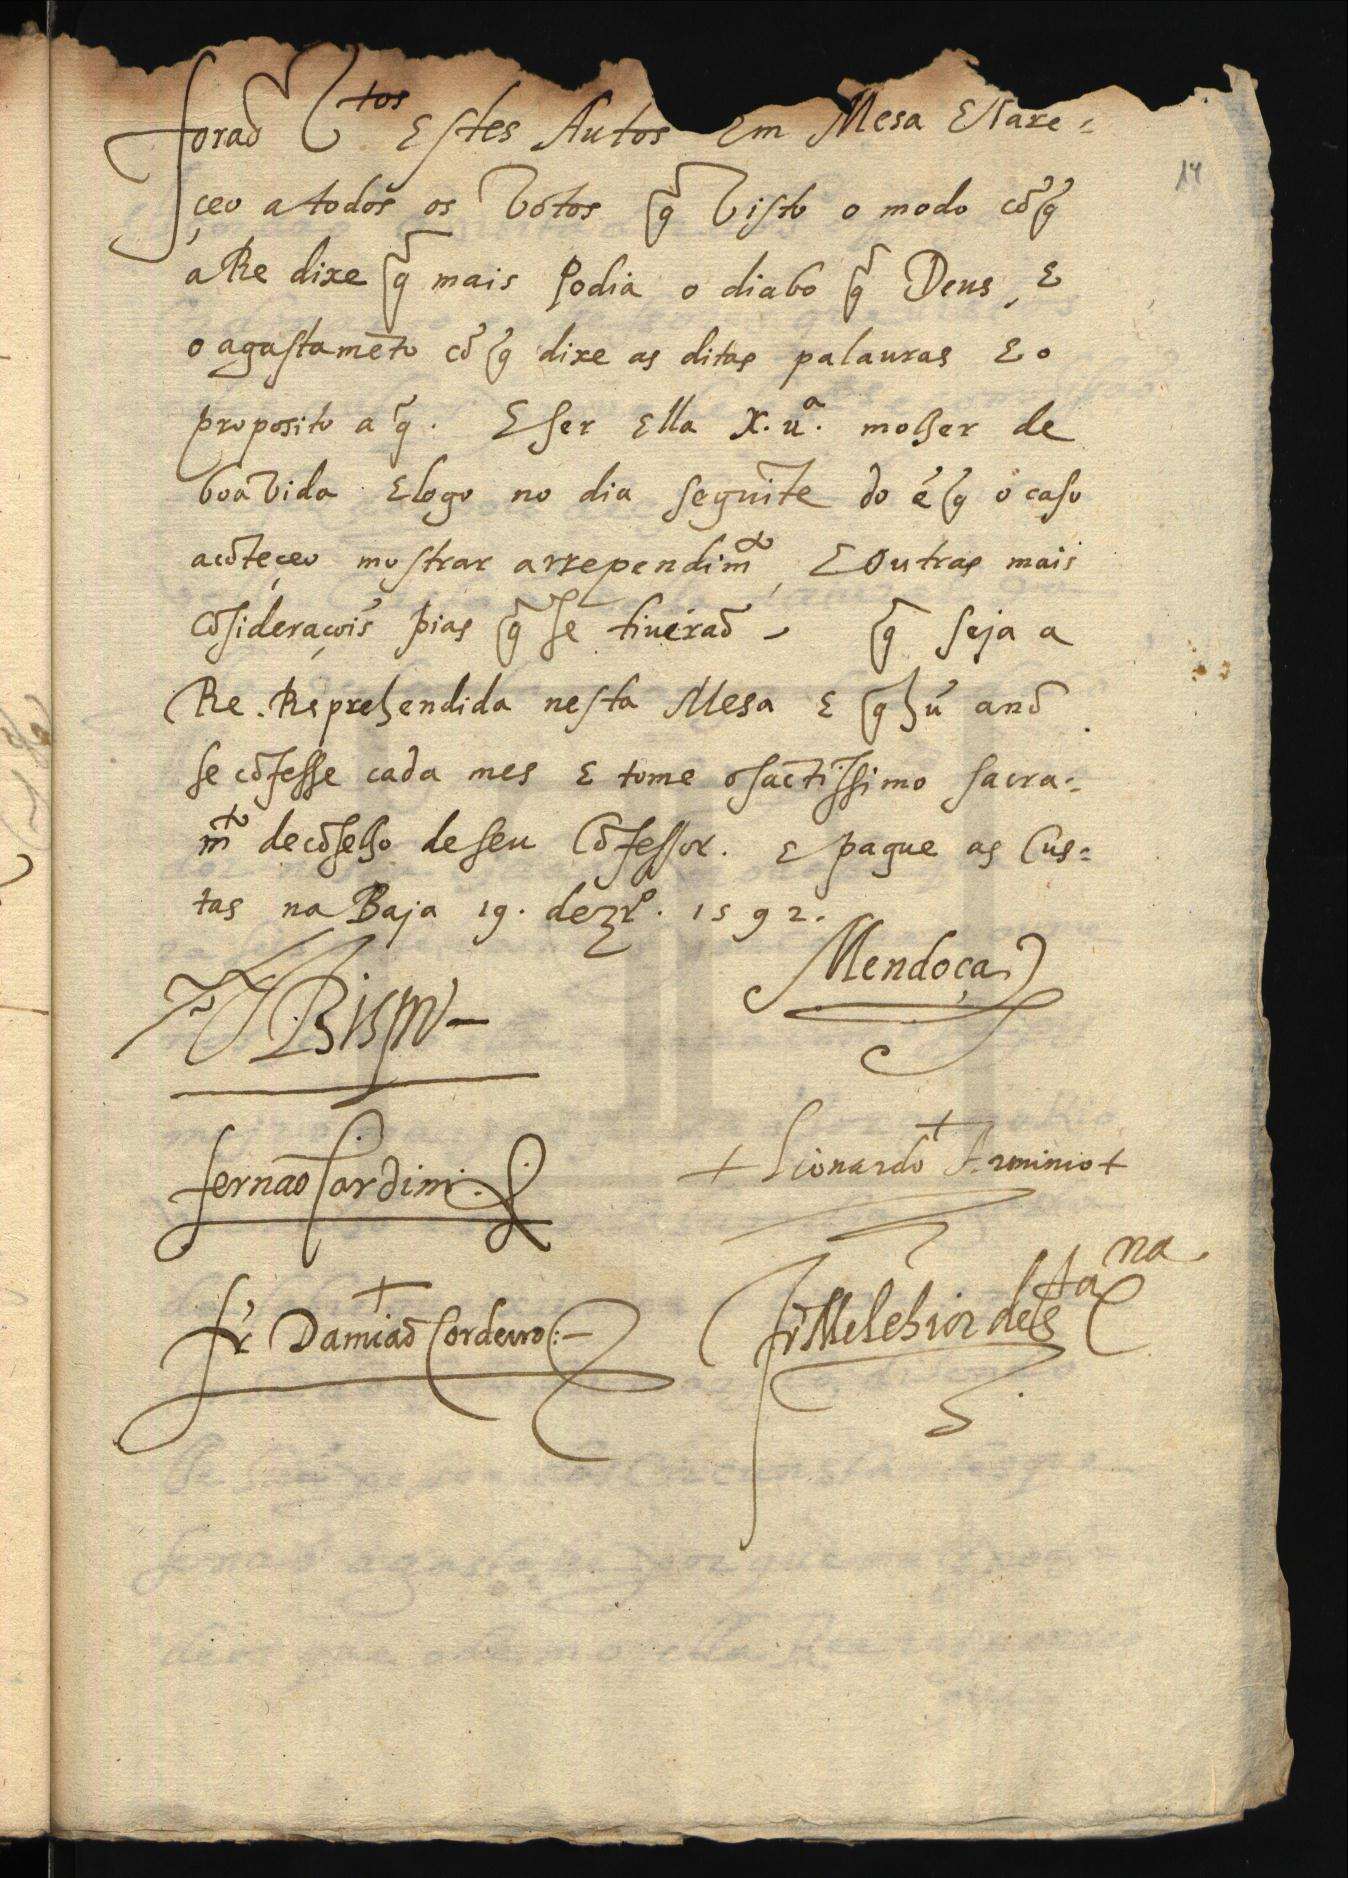 foraõ Vtos Estes Autos Em Mesa E Pare-
17
çeo a todos os Votos q̃ Visto o modo cõ q̃
a Re dixe q̃ mais Podia o diabo q̃ Deus, E
o agastamẽto cõ q̃ dixe as ditas palauras E o
proposito a q̃. E ser Ella x. uª. molher de
boa Vida E logo no dia seguĩte do ẽ q̃ o caso
acõteçeo mostrar arrependimto, E outras mais
Cõsideraçoĩs pias q̃ se tiueraõ – q̃ seja a
Re. Reprehendida nesta Mesa E q̃ hũ anõ
se cõfesse cada mes E tome o sãctissimo sacra-
mto de cõselho de seu Cõfessor. E pague as Cus-
tas na Baja 19. dezro. 1592.
Mendoça
Bispo
fernaõ Cardim.
+ Lionardo Arminio +
fr Damiaõ Cordeiro
fr Melchior de Sta na